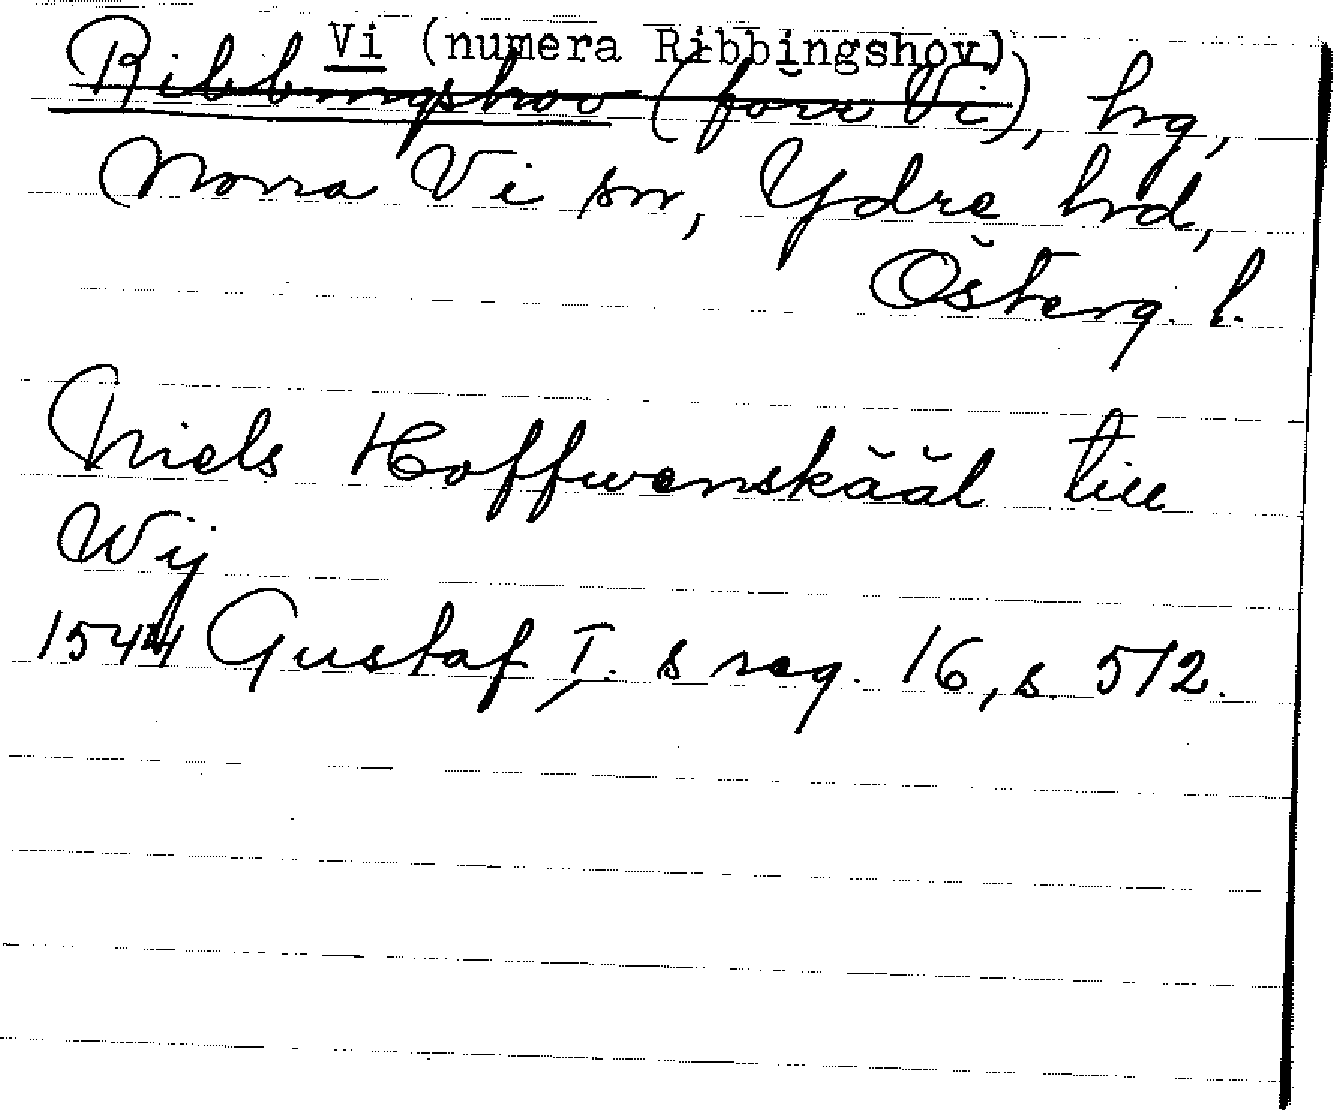 Vi (numera Ribbingshov)
Ribbingshov (förr Vi), hg,
Norra Vi sn, Ydre hd,
Österg. l.
Niels Hoffwenskääl till
Wij
1544 Gustaf I. s reg. 16, s. 572.